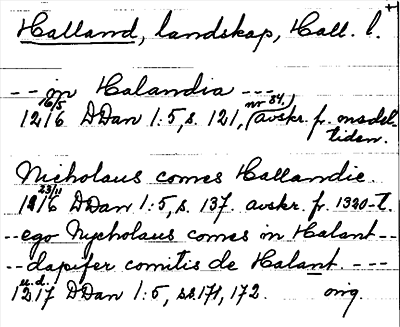 Halland, landskap, Hall. l.
-- in Halandia ---
16/5 nr 84.)
1216 DDan 1:5, s. 121, (avskr. fr. medel-
tiden.
Nicholaus comes Hallandie.
23/11
1216 DDan 1:5, s. 137. avskr. fr. 1320-t.
-- ego Nycholaus comes in Halant --
-- dapifer comitis de Halant. ---
u.d.
1217 DDan 1:5, ss. 171, 172. orig.